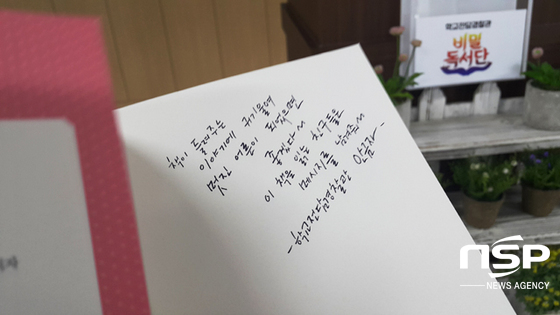 학교전담경찰관
비밀
독서단
책이 들려주는
이야기에 귀기울여
멋진 어른이 되었으면
좋겠다
이 책을 읽는 친구들을
메시지를
-학교전담경찰관
NSP
NEWS AGENCY